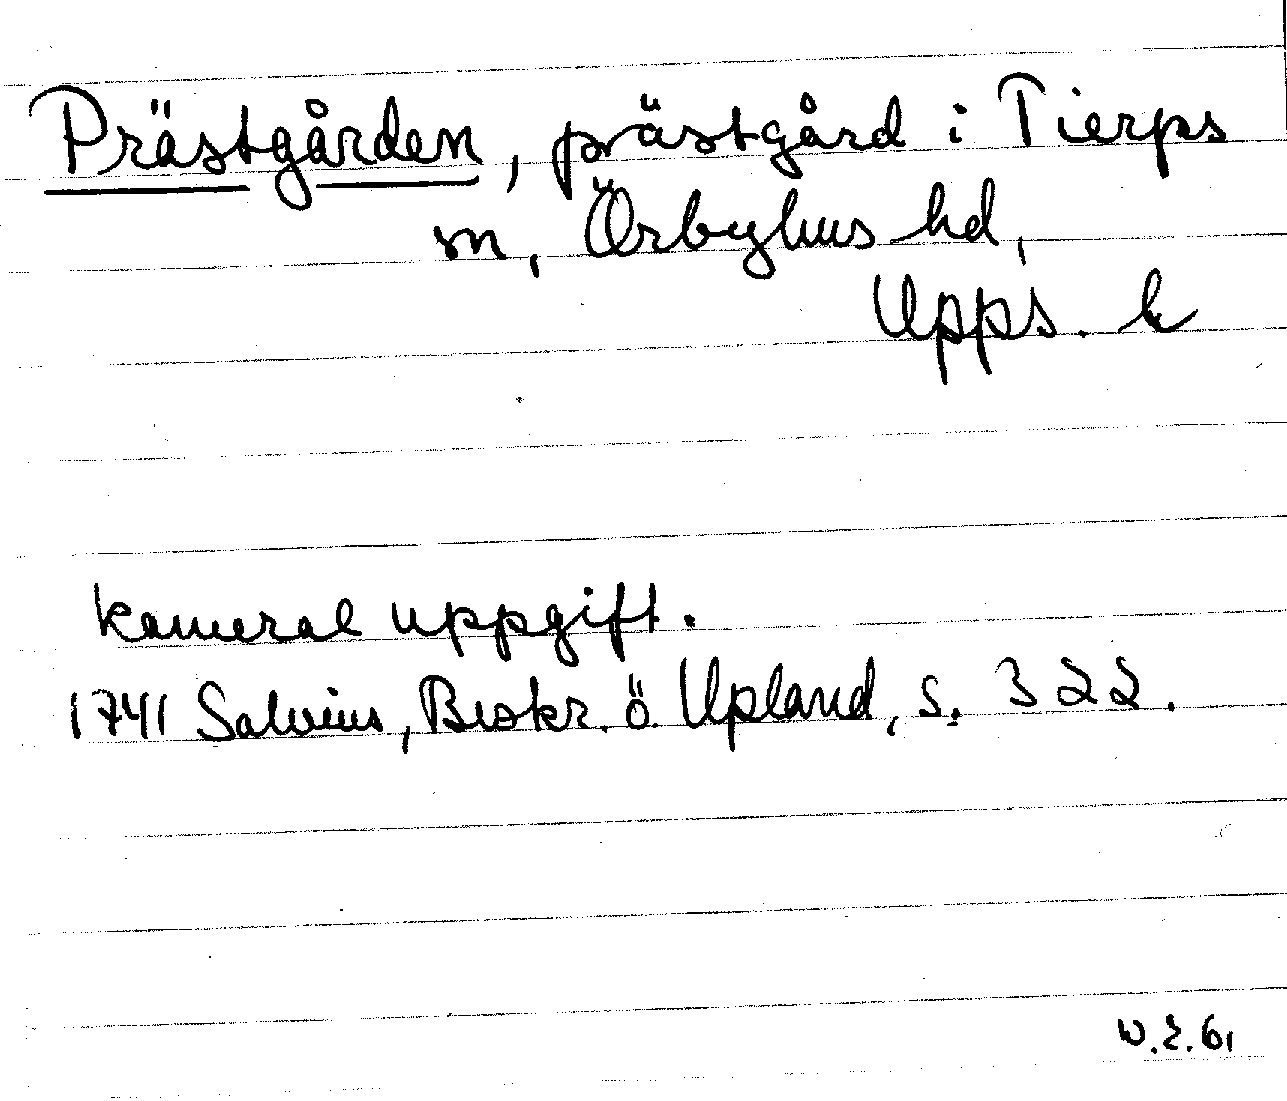 Prästgården, prästgård i Tierps
sn, Örbyhus hd,
Upps. l
kameral uppgift.
1741 Salvius, Beskr. ö. Upland, s. 322.
W.E. 61